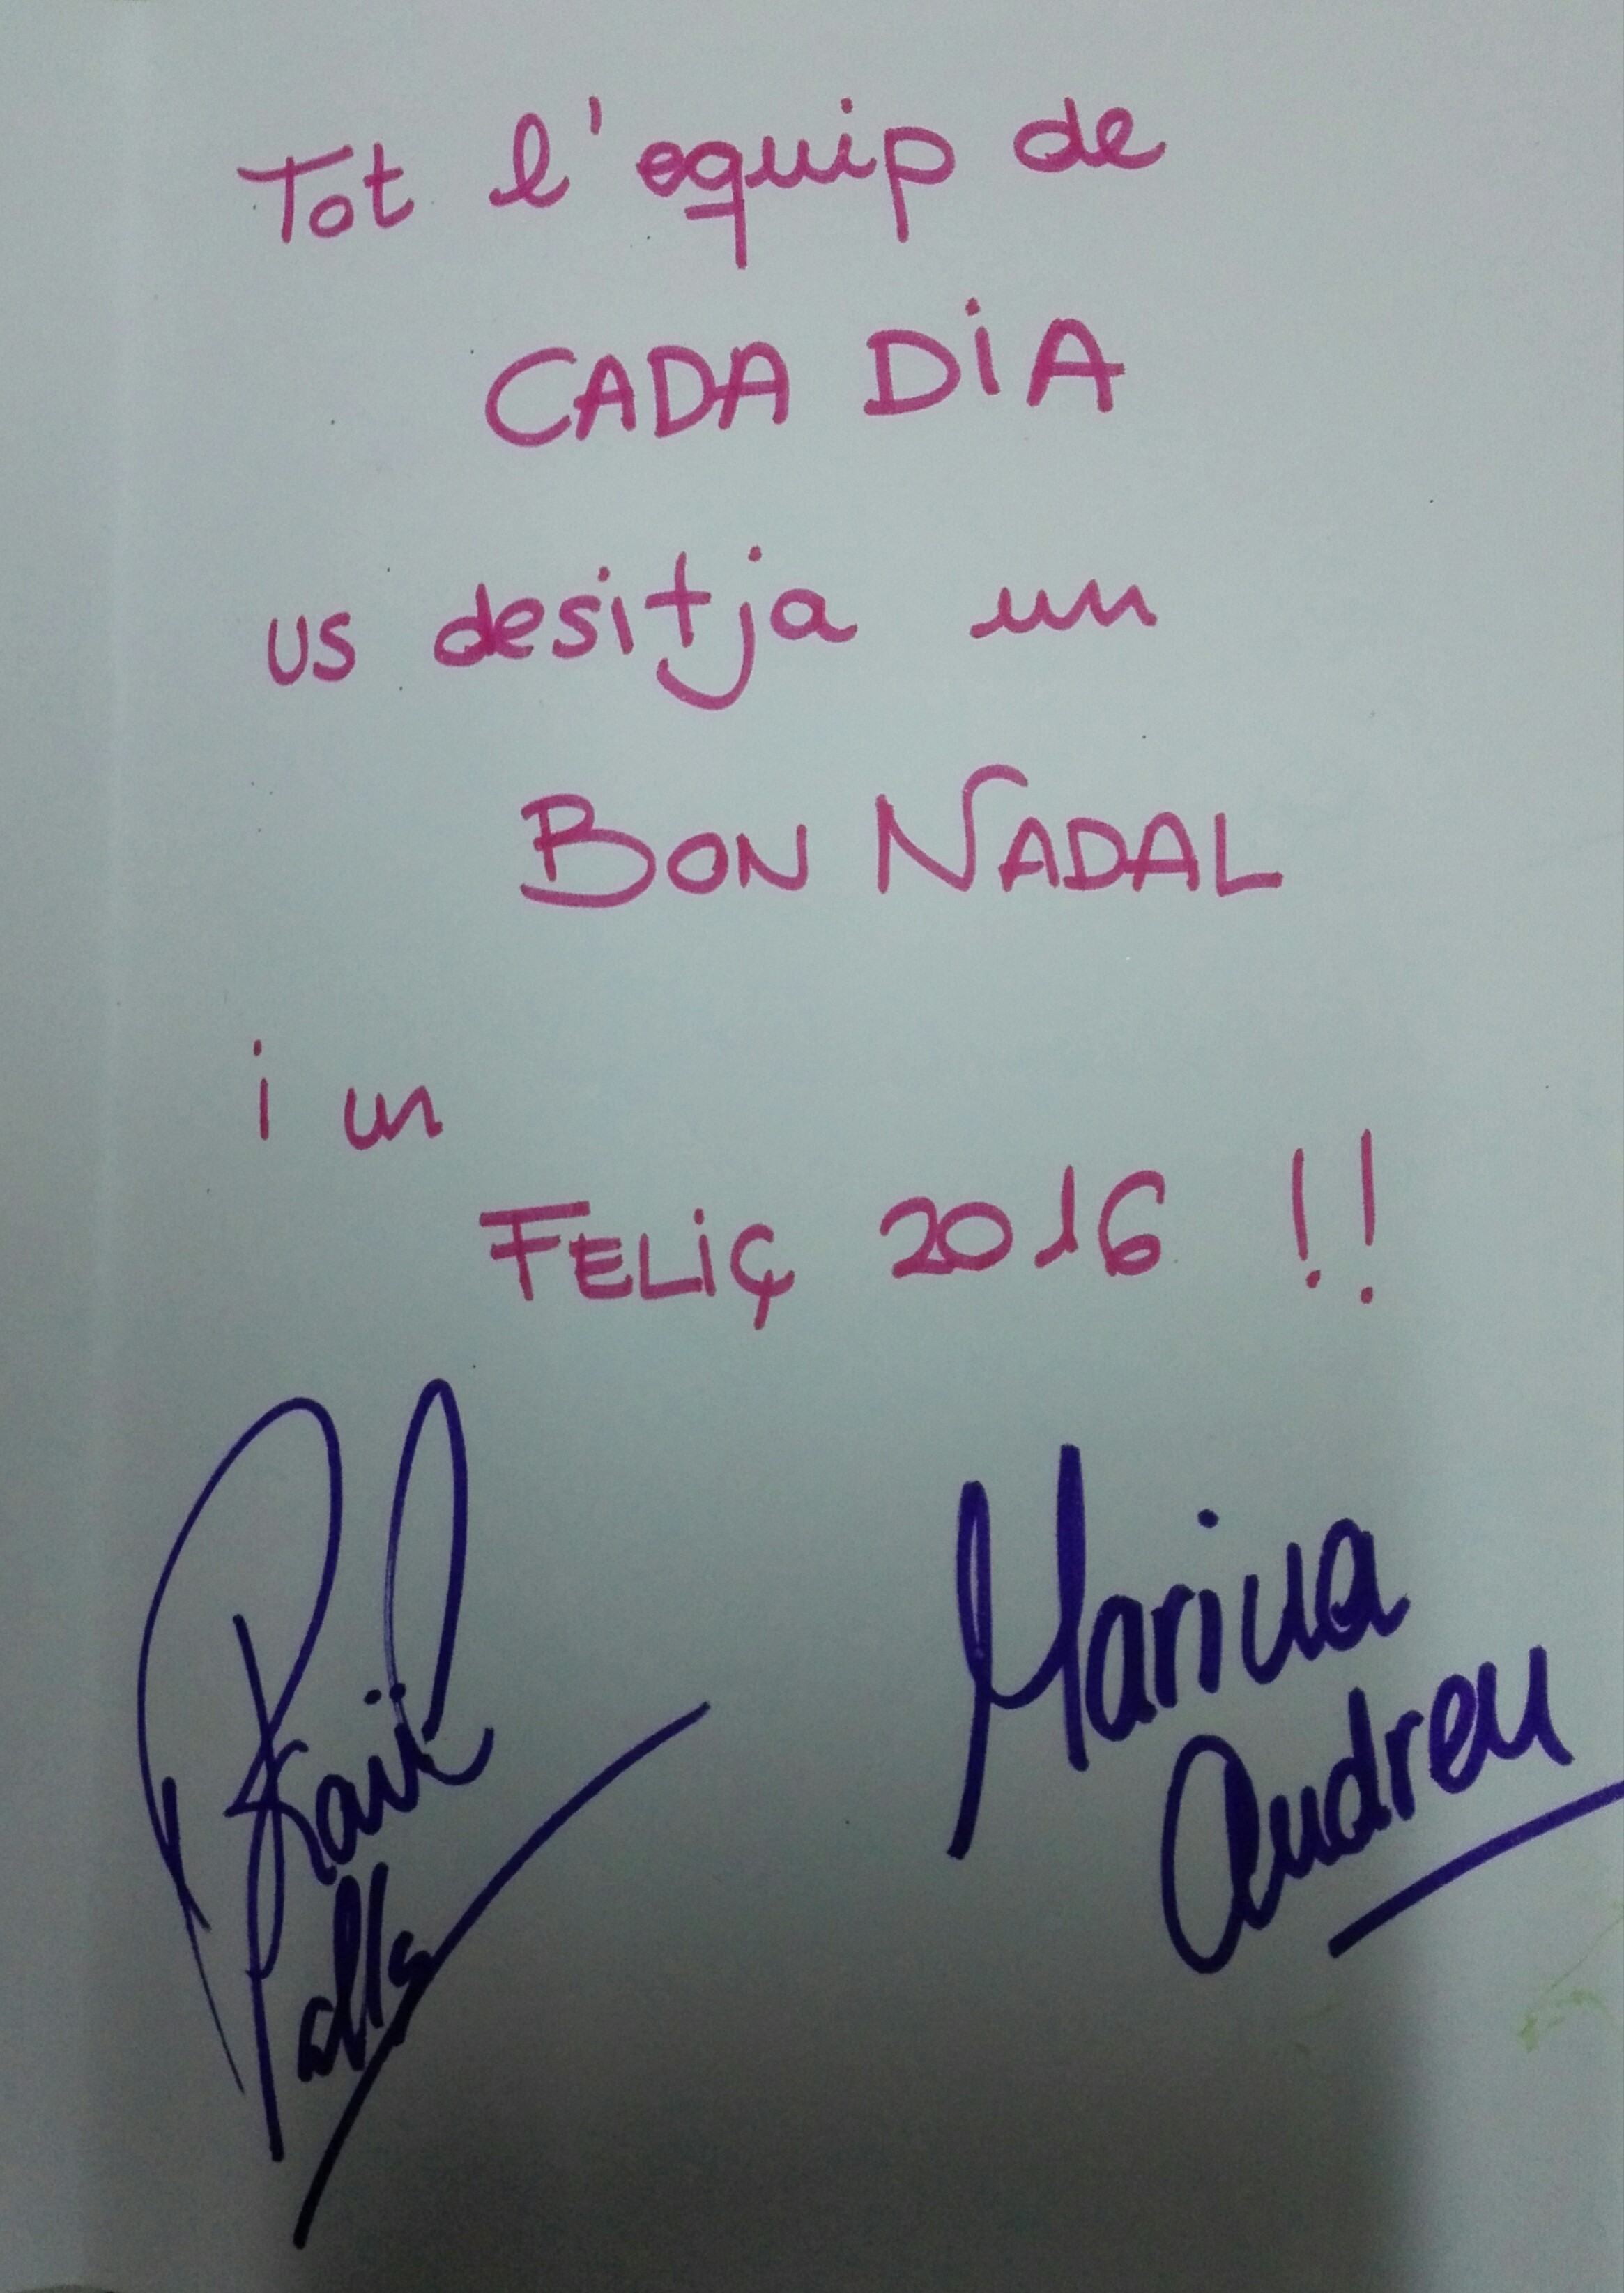 Tot l'equip de
CADA DIA
us desitja un
BON NADAL
i un
FELIÇ 2016 !!
Raül
Marina
Andreu